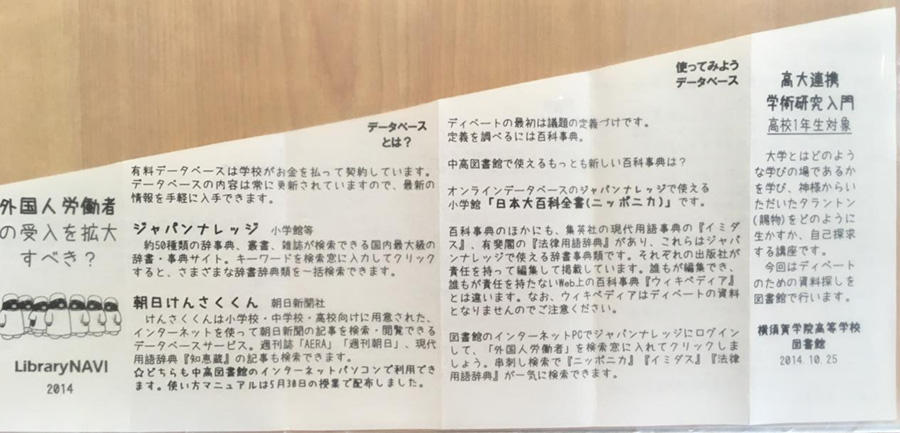 外国人労働者
の受入を拡大
すべき？
LibraryNAVI
2014
データベース
とは？
有料データベースは学校がお金を払って契約しています。
データベースの内容は常に更新されていますので、最新の
情報を手軽に入手できます。
ジャパンナレッジ 小学館等
約50種類の辞事典、叢書、雑誌が検索できる国内最大級の
辞書・事典サイト。キーワードを検索窓に入力してクリック
すると、さまざまな辞書辞典類を一括検索できます。
朝日けんさくくん 朝日新聞社
けんさくくんは小学校・中学校・高校向けに用意された、
インターネットを使って朝日新聞の記事を検索・閲覧できる
データベースサービス。週刊誌「AERA」「週刊朝日」、現代
用語辞典『知恵蔵』の記事も検索できます。
☆どちらも中高図書館のインターネットパソコンで利用でき
ます。使い方マニュアルは5月30日の授業で配布しました。
使ってみよう
データベース
ディベートの最初は議題の定義づけです。
定義を調べるには百科事典。
中高図書館で使えるもっとも新しい百科事典は？
オンラインデータベースのジャパンナレッジで使える
小学館「日本大百科全書(ニッポニカ)」です。
百科事典のほかにも、集英社の現代用語事典の『イミダ
ス』、有斐閣の『法律用語辞典』があり、これらはジャパ
ンナレッジで使える辞書事典類です。それぞれの出版社が
責任を持って編集して掲載しています。誰もが編集でき、
誰もが責任を持たないWeb上の百科事典『ウィキペディア』
とは違います。なお、ウィキペディアはディベートの資料
となりませんのでご注意ください。
図書館のインターネットPCでジャパンナレッジにログイン
して、「外国人労働者」を検索窓に入れてクリックしま
しょう。串刺し検索で『ニッポニカ』『イミダス』『法律
用語辞典』が一気に検索できます。
高大連携
学術研究入門
高校1年生対象
大学とはどのよう
な学びの場であるか
を学び、神様からい
ただいたタラントン
(賜物)をどのように
生かすか、自己探求
する講座です。
今回はディベート
のための資料探しを
図書館で行います。
横須賀学院高等学校
図書館
2014.10.25